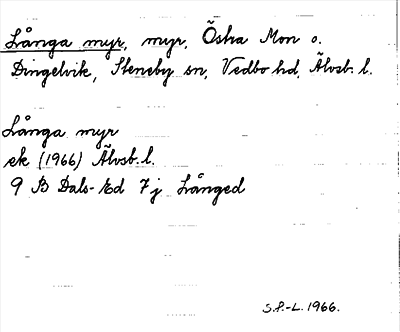 Långa myr, myr, Östra Mon o.
Dingelvik, Steneby sn, Vedbo hd, Älvsb. l.
Långa myr
ek (1966) Älvsb. l.
9 B Dals-Ed 7 j Långed
S.P.-L. 1966.